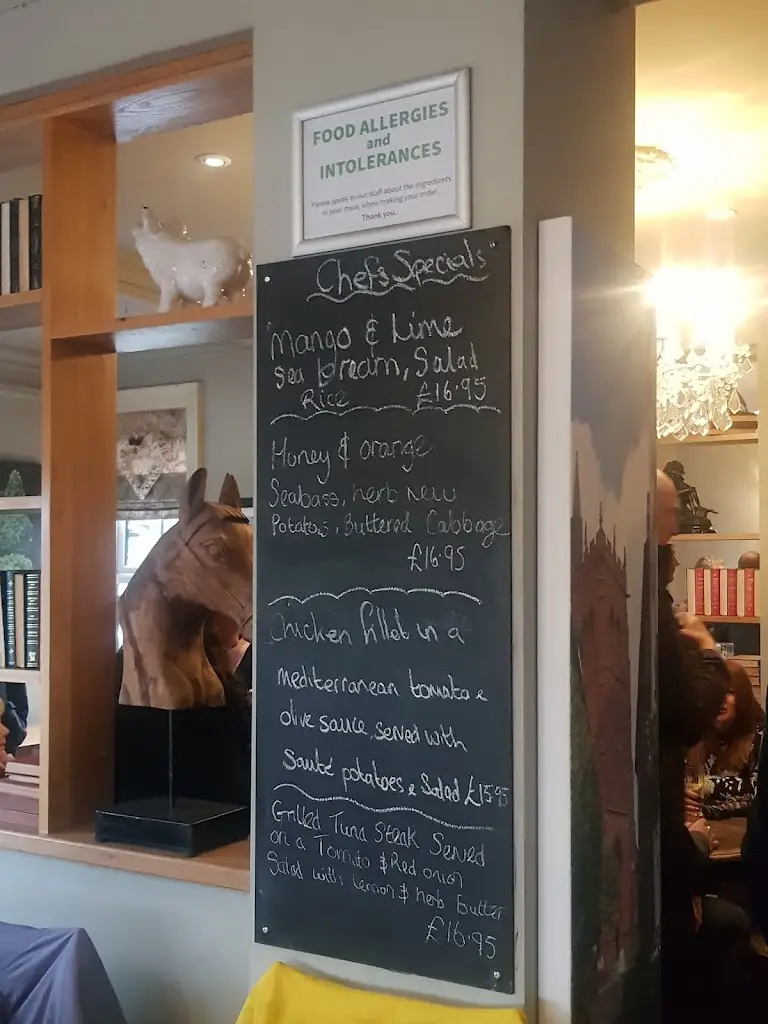 FOOD ALLERGIES
and
INTOLERANCES
Please speak to our staff about the ingredients
in your meal, when making your order.
Thank you.
Chef's Specials
Mango & Lime
Sea bream, Salad
Rice £16.95
Honey & orange
Seabass, herb new
Potatoes, Buttered Cabbage
£16.95
Chicken fillet in a
mediterranean tomato &
olive sauce, served with
Sauté potatoes & Salad £15.95
Grilled Tuna Steak Served
on a Tomato & Red onion
Salad with Lemon & herb butter
£16.95